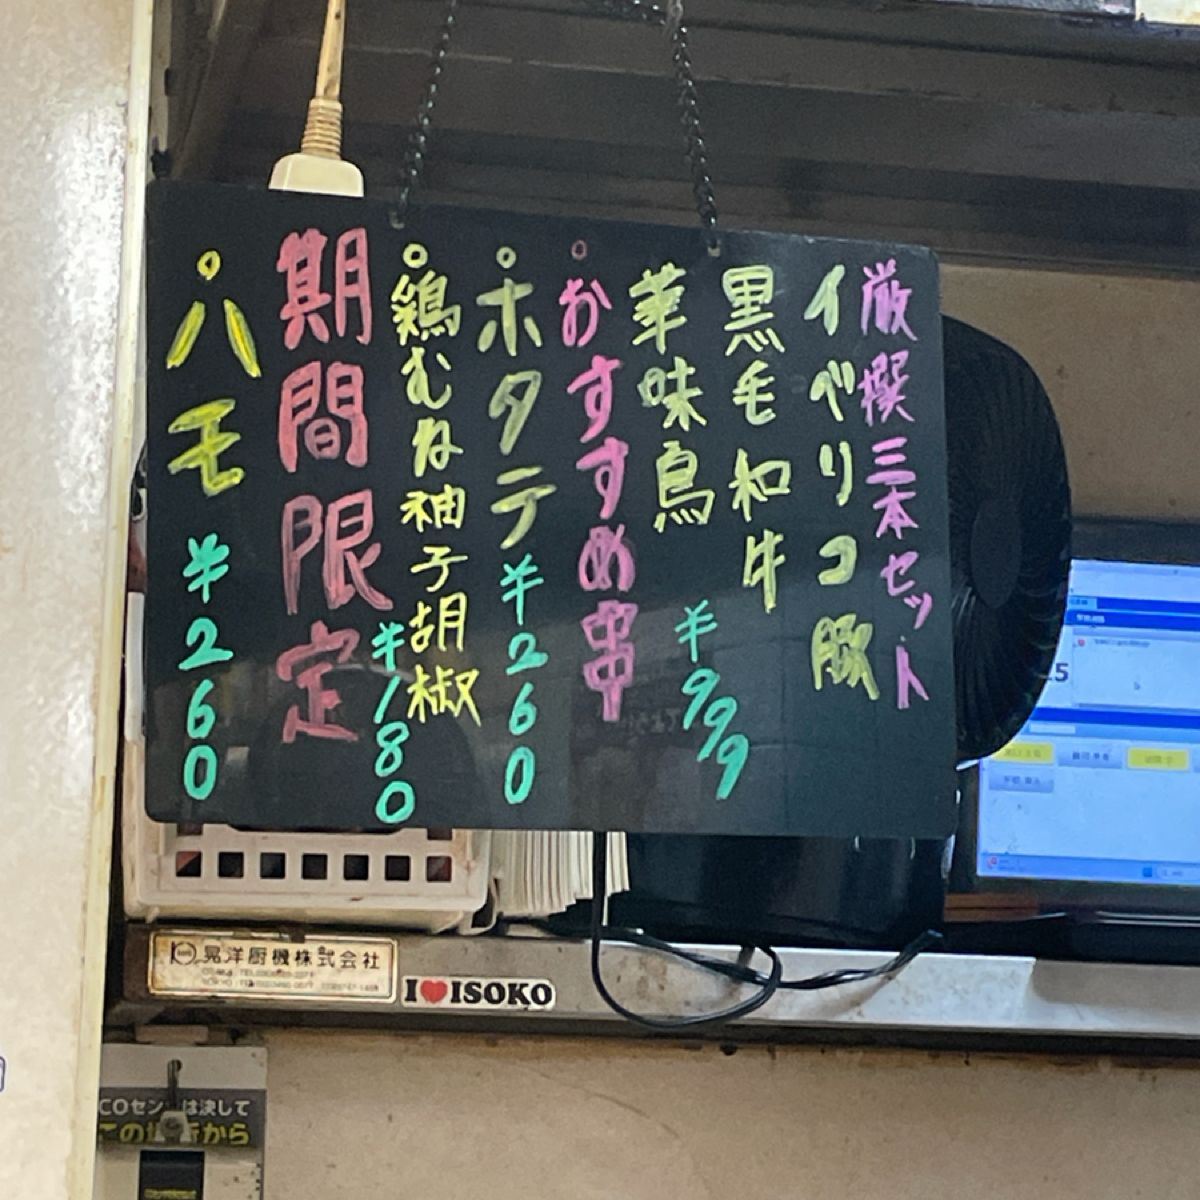 厳撰三本セット
イベリコ豚
黒毛和牛
華味鳥 ¥999
おすすめ串
ホタテ ¥260
鶏むね柚子胡椒
¥180
期間限定
ハモ ¥260
晃洋厨機株式会社
I♥ISOKO
COセン は決して
この場所から